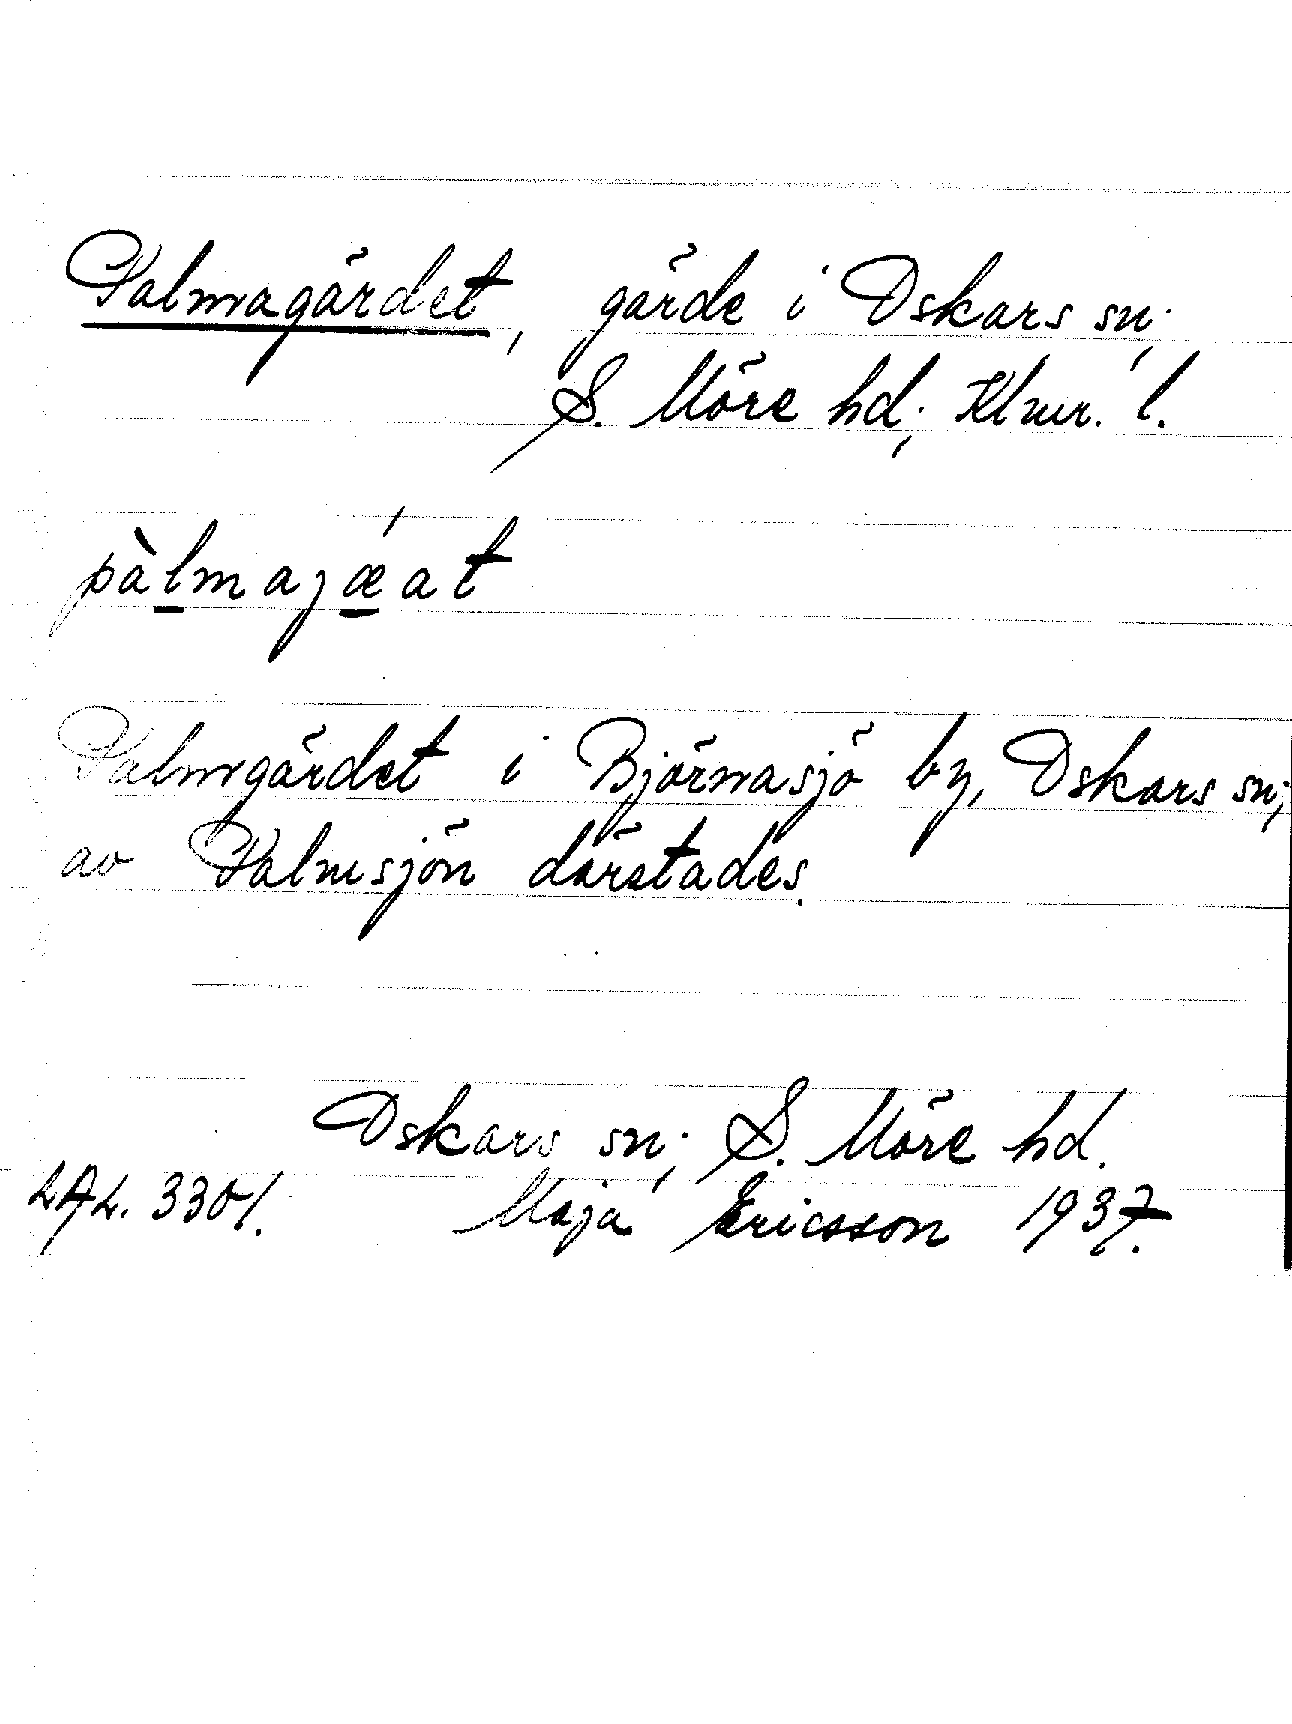 Palmagärdet, gärde i Oskars sn;
S. Möre hd; Klmr. l.
pàlmajǽat
Palmgärdet i Björnasjö by, Oskars sn;
av Palmsjön därstädes.
Oskars sn; S. Möre hd.
LAL. 3301. Maja Ericsson 1937.